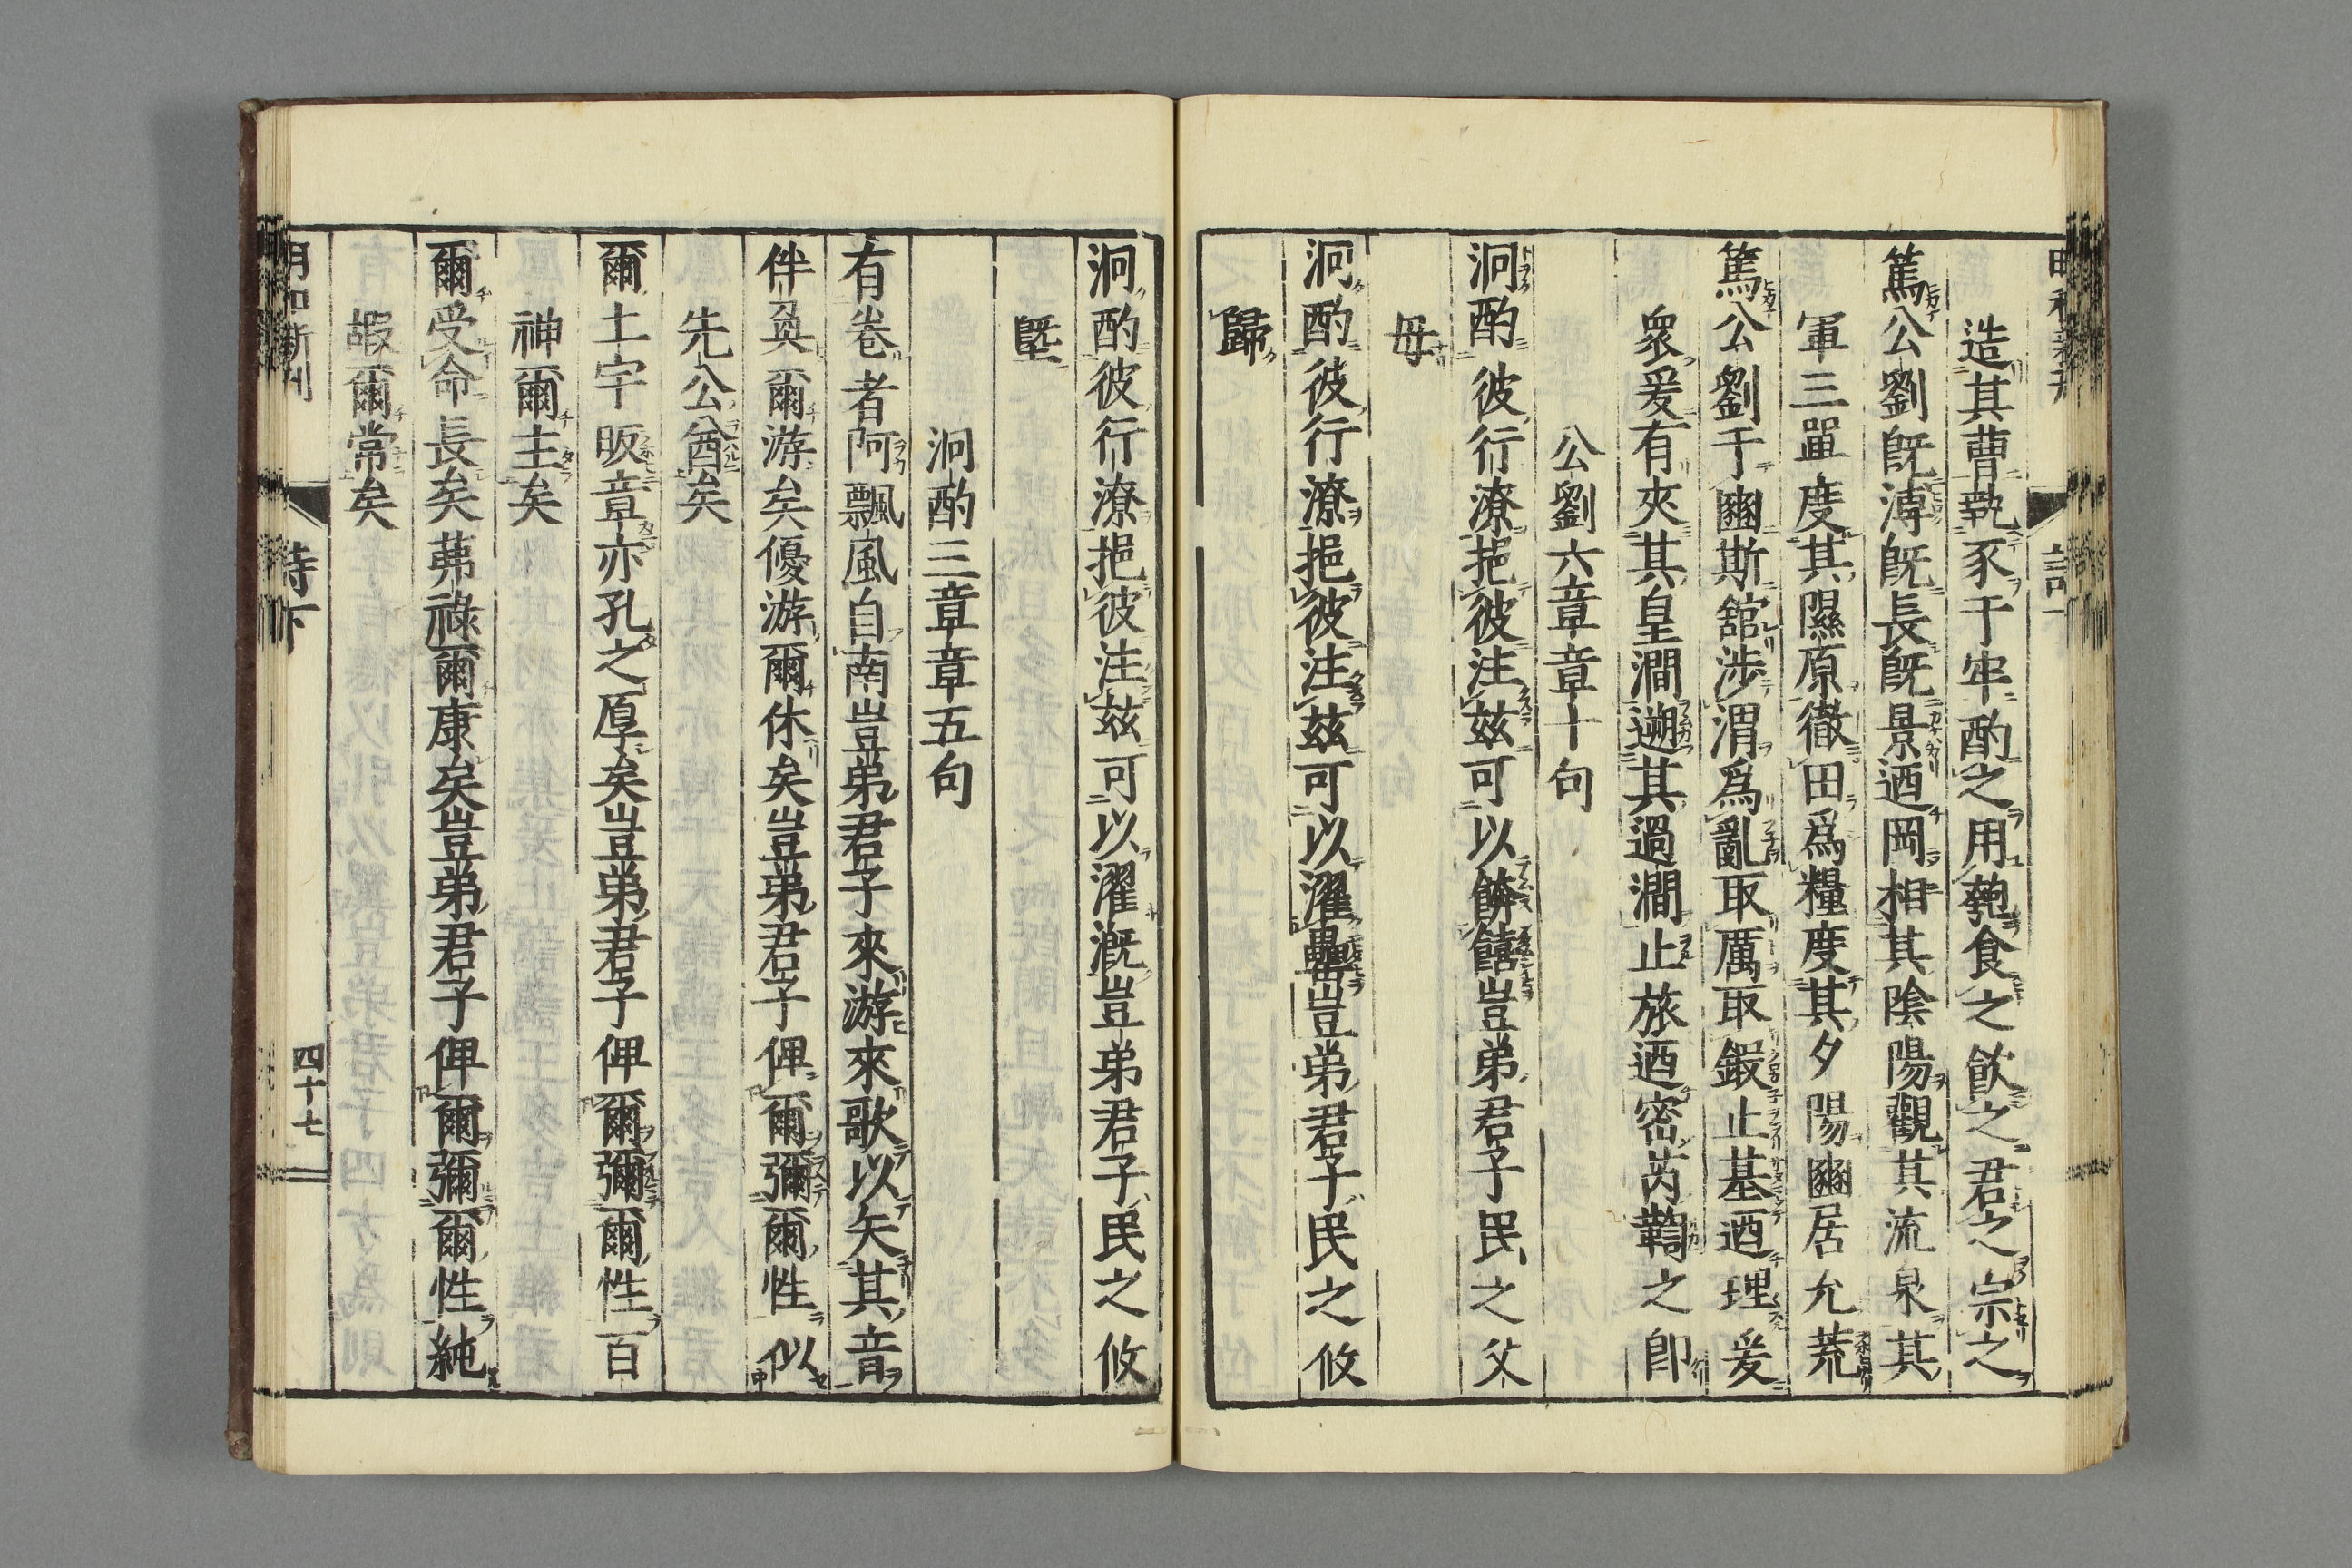 造其曹執豕于牢酌之用匏食之飲之君之宗之
篤公劉既溥既長既景迺岡相其陰陽觀其流泉其
軍三單度其隰原徹田爲糧度其夕陽豳居允荒
篤公劉于豳斯舘渉渭爲亂取厲取鍛止基迺理爰
衆爰有夾其皇澗遡其過澗止旅迺密芮鞫之即
公劉六章章十句
泂酌彼行潦挹彼注茲可以餴饎豈弟君子民之父
母
泂酌彼行潦挹彼注茲可以濯罍豈弟君子民之攸
歸
泂酌彼行潦挹彼注茲可以濯漑豈弟君子民之攸
墍
泂酌三章章五句
有卷者阿飄風自南豈弟君子來游來歌以矢其音
伴奐爾游矣優游爾休矣豈弟君子俾爾彌爾性似
先公酋矣
爾土宇昄章亦孔之厚矣豈弟君子俾爾彌爾性百
神爾主矣
爾受命長矣茀祿爾康矣豈弟君子俾爾彌爾性純
嘏爾常矣
詩下
四十七